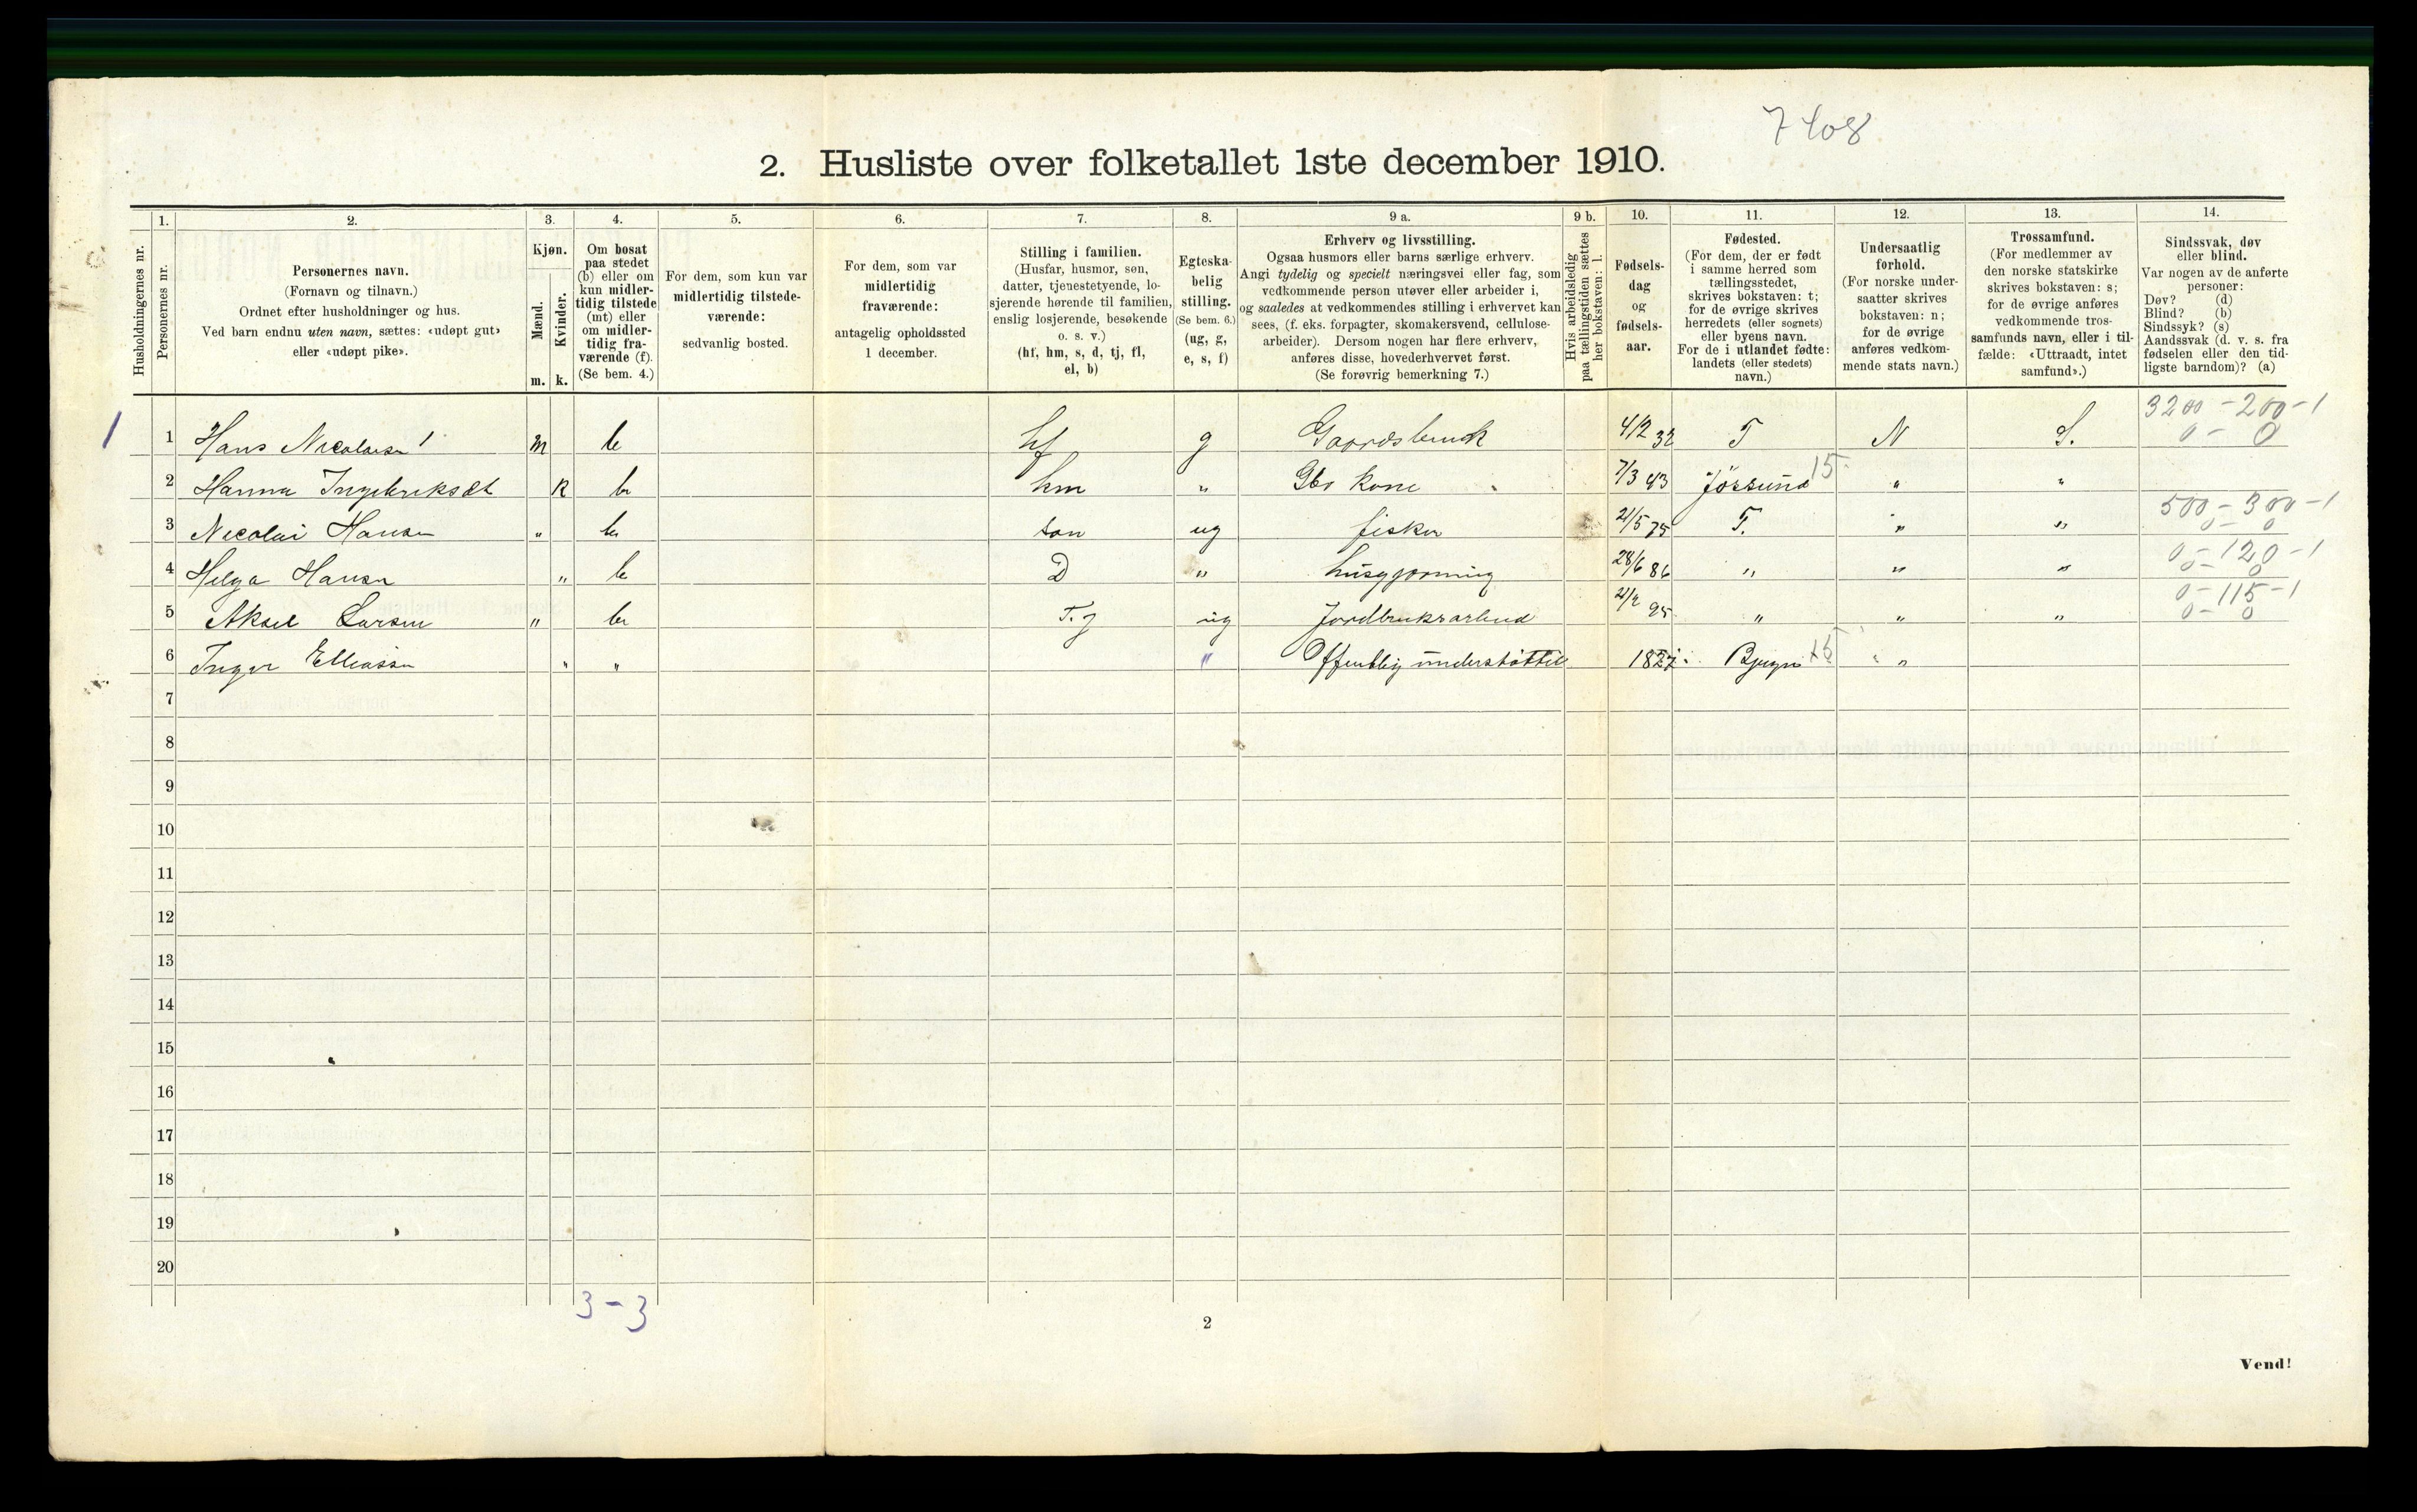 7408
2. Husliste over folketallet 1ste december 1910.
1. 2. 3. 4. 5. 6. 7. 8. 9 a. 9 b. 10. 11. 12. 13. 14.
Husholdningernes nr.
Personernes nr.
Personernes navn.
(Fornavn og tilnavn.)
Ordnet efter husholdninger og hus.
Ved barn endnu uten navn, sættes: «udøpt gut»
eller «udøpt pike».
Kjøn.
Mænd.
Kvinder.
m. k.
Om bosat
paa stedet
(b) eller om
kun midler-
tidig tilstede
(mt) eller
om midler-
tidig fra-
værende (f).
(Se bem. 4.)
For dem, som kun var
midlertidig tilstede-
værende:
sedvanlig bosted.
For dem, som var
midlertidig
fraværende:
antagelig opholdssted
1 december.
Stilling i familien.
(Husfar, husmor, søn,
datter, tjenestetyende, lo-
sjerende hørende til familien,
enslig losjerende, besøkende
o. s. v.)
(hf, hm, s, d, tj, fl,
el, b)
Egteska-
belig
stilling.
(Se bem. 6.)
(ug, g,
e, s, f)
Erhverv og livsstilling.
Ogsaa husmors eller barns særlige erhverv.
Angi tydelig og specielt næringsvei eller fag, som
vedkommende person utøver eller arbeider i,
og saaledes at vedkommendes stilling i erhvervet kan
sees, (f. eks. forpagter, skomakersvend, cellulose-
arbeider). Dersom nogen har flere erhverv,
anføres disse, hovederhvervet først.
(Se forøvrig bemerkning 7.)
Hvis arbeidsledig
paa tællingstiden sættes
her bokstaven: l.
Fødsels-
dag
og
fødsels-
aar.
Fødested.
(For dem, der er født
i samme herred som
tællingsstedet,
skrives bokstaven: t;
for de øvrige skrives
herredets (eller sognets)
eller byens navn.
For de i utlandet fødte:
landets (eller stedets)
navn.)
Undersaatlig
forhold.
(For norske under-
saatter skrives
bokstaven: n;
for de øvrige
anføres vedkom-
mende stats navn.)
Trossamfund.
(For medlemmer av
den norske statskirke
skrives bokstaven: s;
for de øvrige anføres
vedkommende tros-
samfunds navn, eller i til-
fælde: «Uttraadt, intet
samfund».)
Sindssvak, døv
eller blind.
Var nogen av de anførte
personer:
Døv? (d)
Blind? (b)
Sindssyk? (s)
Aandssvak (d. v. s. fra
fødselen eller den tid-
ligste barndom)? (a)
3200 - 200 - 1
1 1 Hans Nicolaisen 1 m b hf g Gaardsbruk 4/2 32 T N S. 0 - 0
2 Hanna Ingebriksdt k b hm " Gbr kone 7/3 43 Jössund 15 " "
500 - 300 - 1
3 Nicolai Hansen " b son ug fisker 21/5 75 T. " " 0 - 0
0 - 120 - 1
4 Helga Hansen " b D " husgjerning 28/6 86 " " " 0 - 0
0 - 115 - 1
5 Aksel Larsen " b T. j ug Jordbruksarbeid 21/2 95 " " " 0 - 0
6 Inger Elliassen " " " Offentlig understöttet 1827 Bjugn 15 "
7
8
9
10
11
12
13
14
15
16
17
18
19
20
3 - 3
2
Vend!